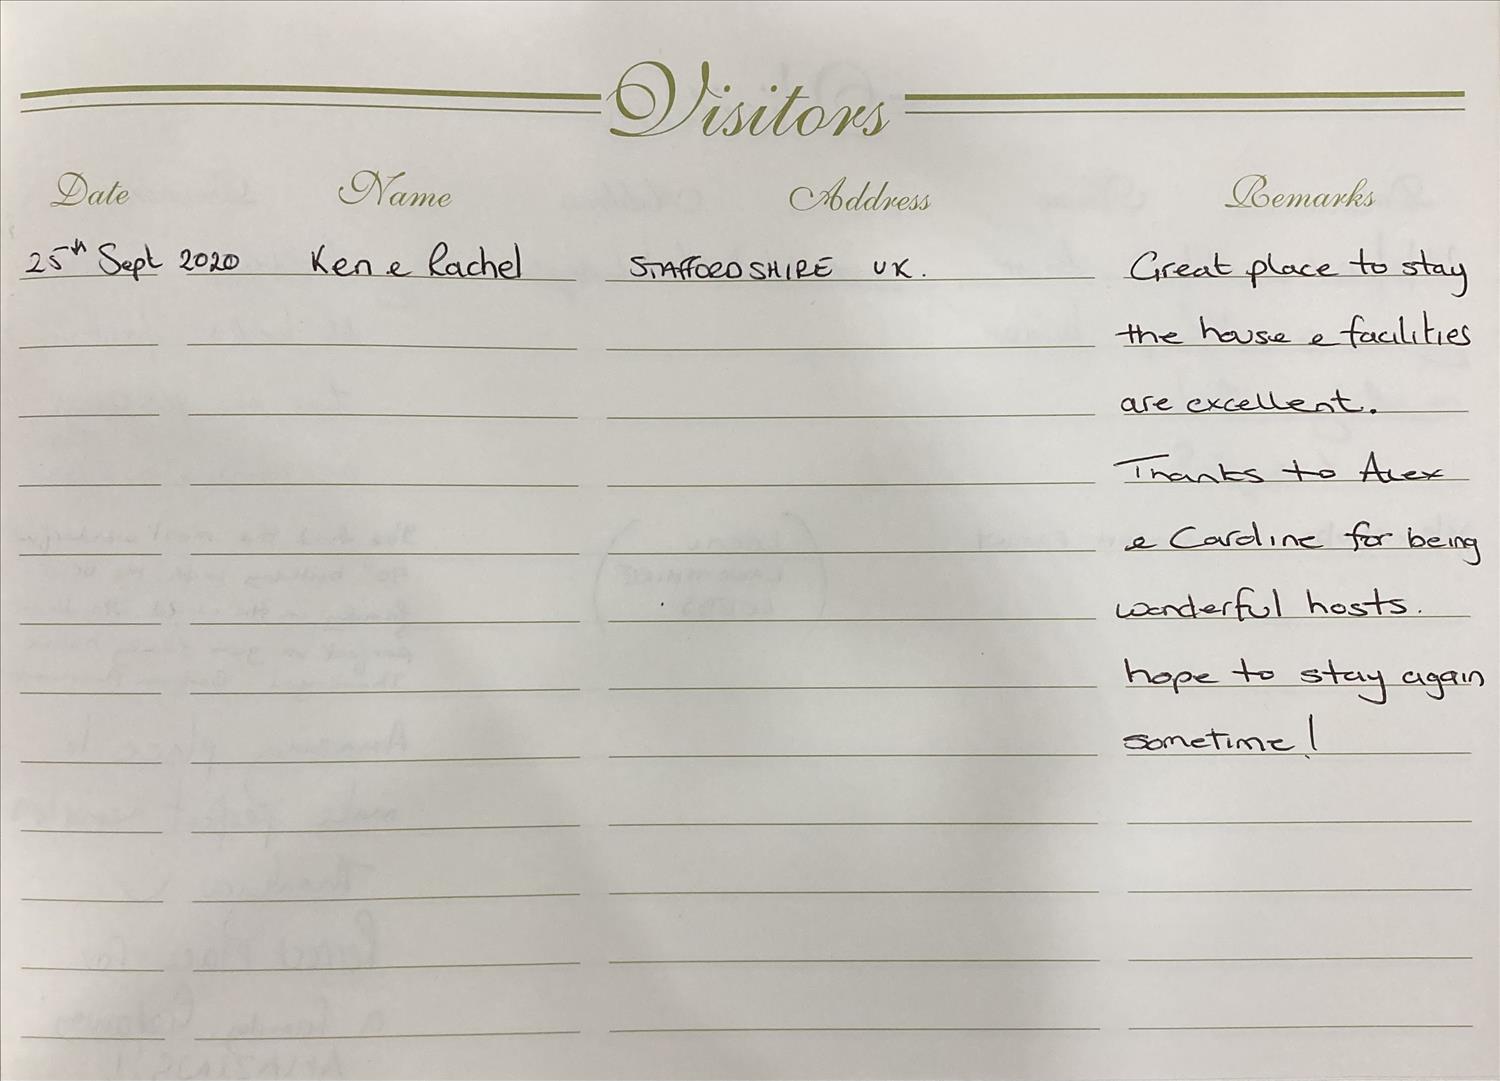 Visitors
Date Name Address Remarks
25th Sept 2020 Ken e Rachel STAFFORDSHIRE UK. Great place to stay
the house e facilities
are excellent.
Thanks to Alex
e Caroline for being
wonderful hosts.
hope to stay again
sometime!